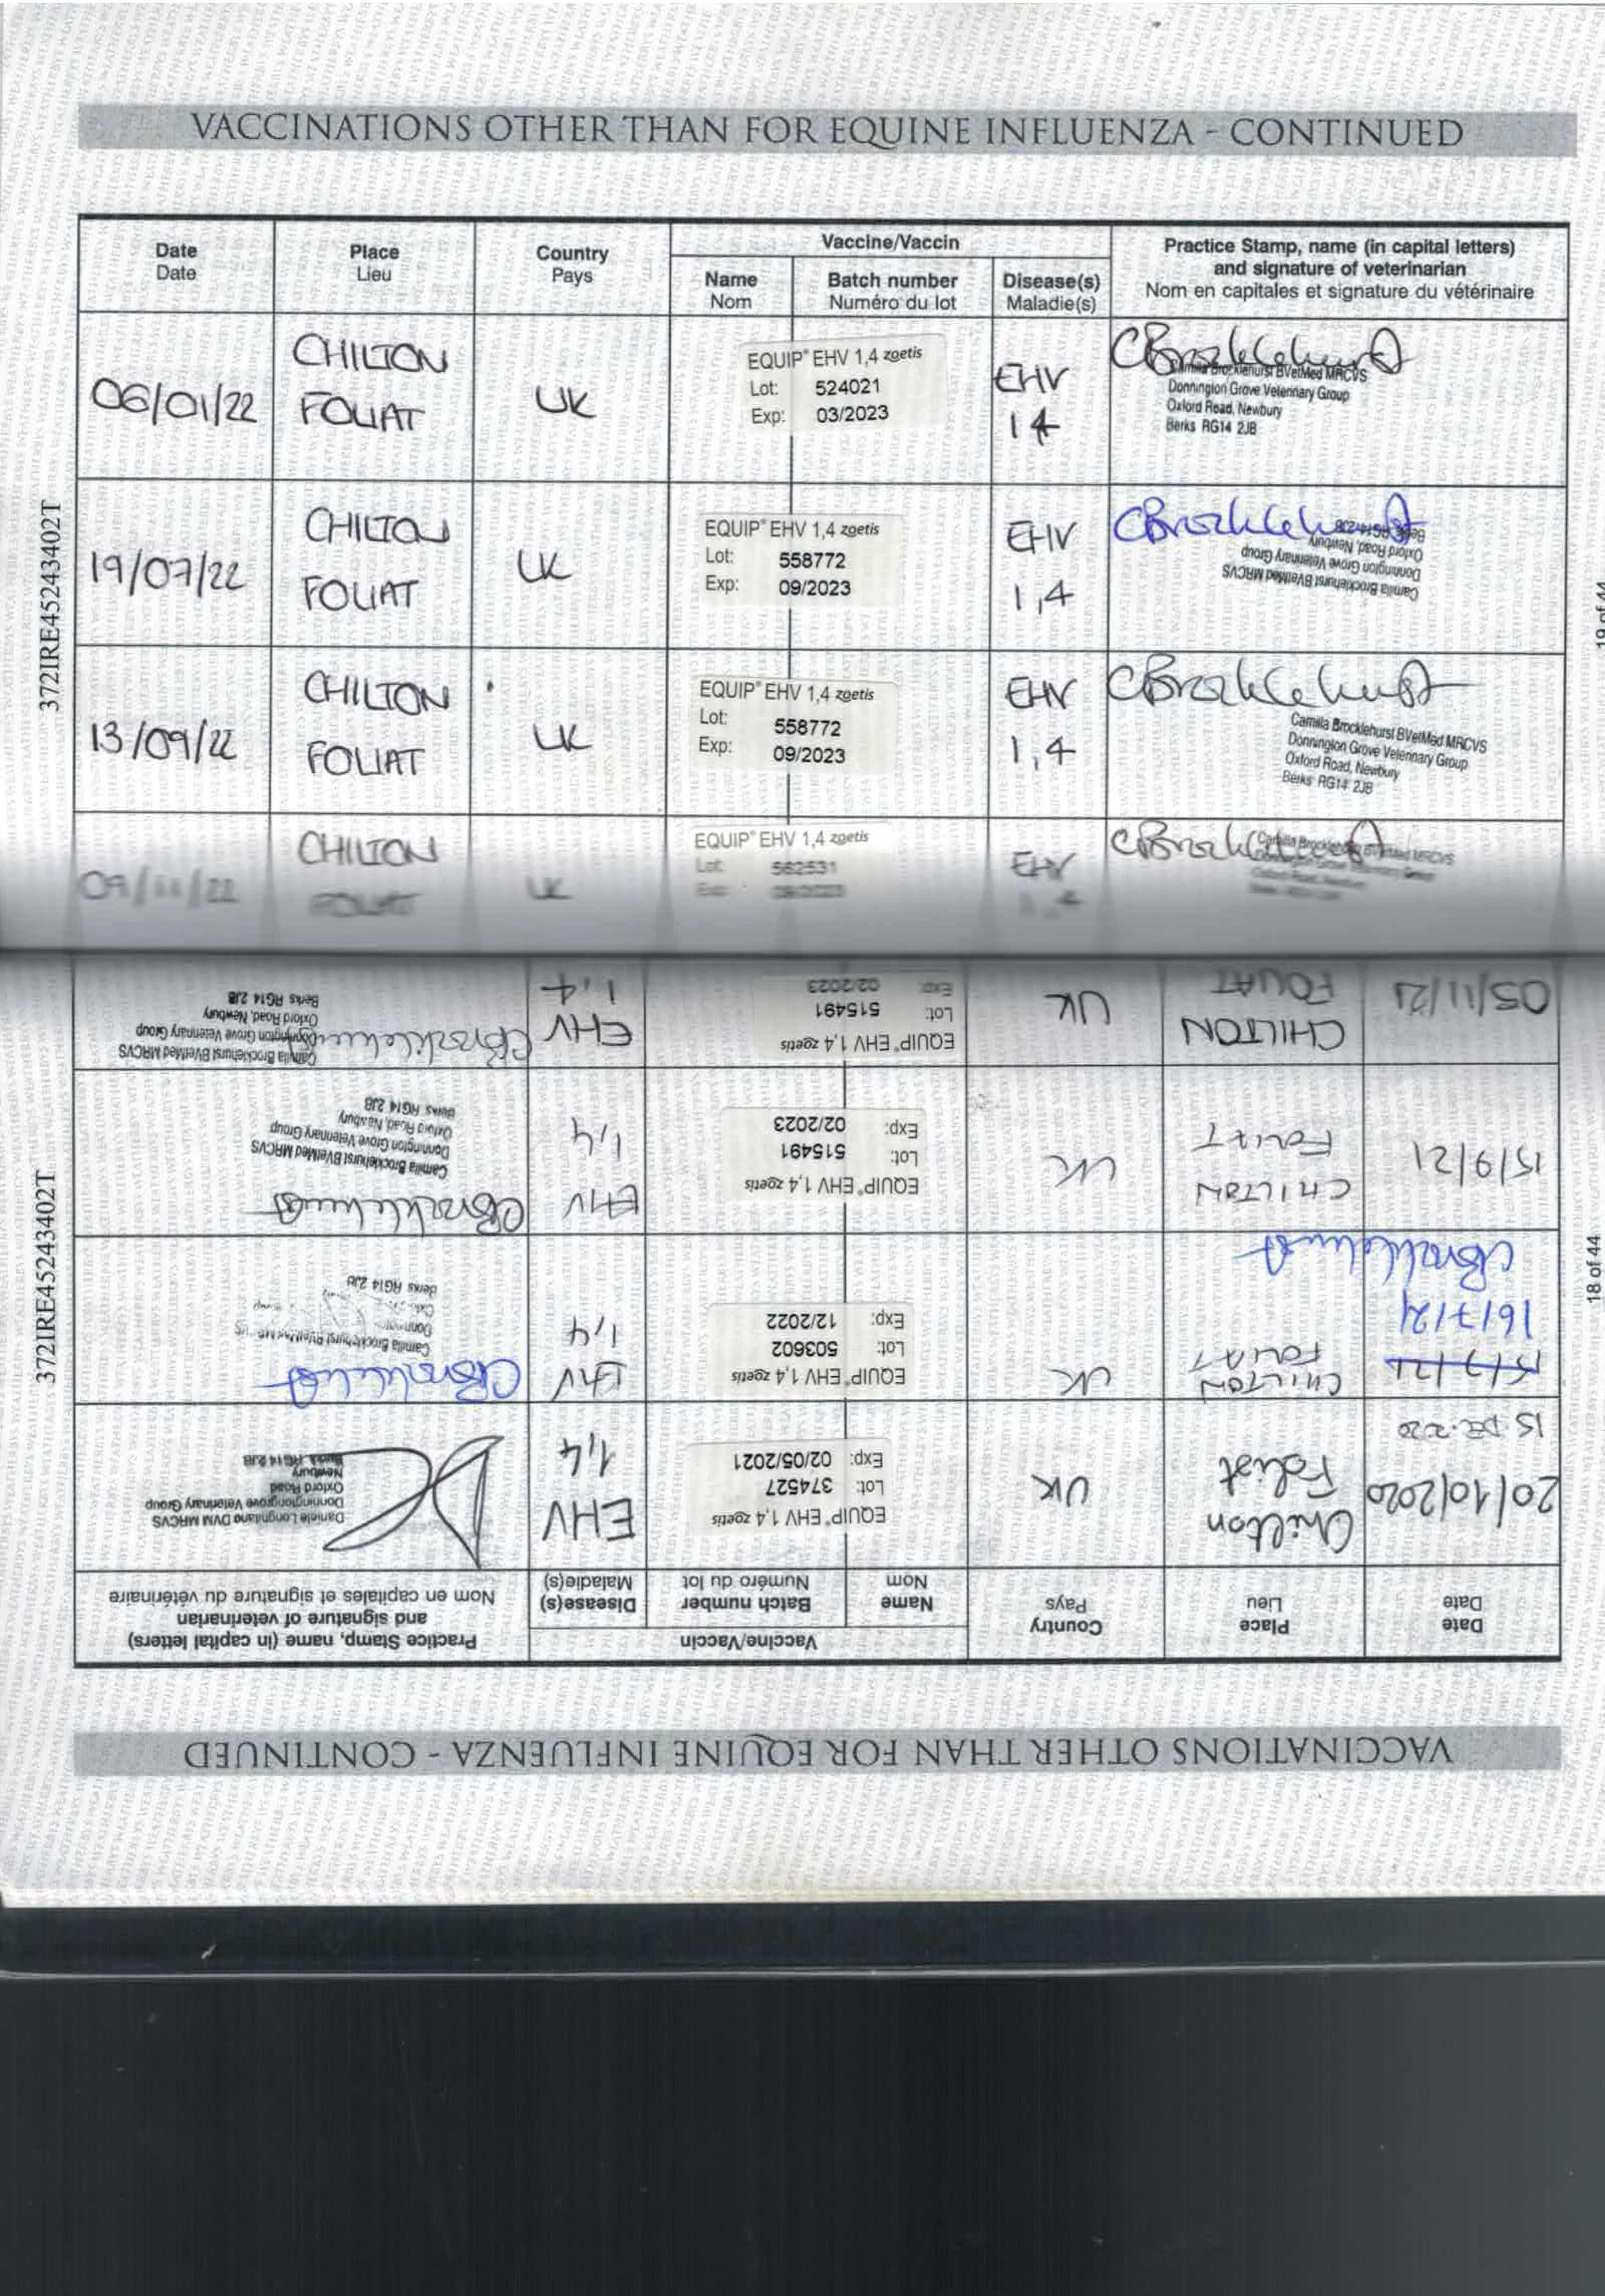 VACCINATIONS OTHER THAN FOR EQUINE INFLUENZA - CONTINUED
Date
Date
Place
Lieu
Country
Pays
Vaccine/Vaccin
Name
Nom
Batch number
Numéro du lot
Disease(s)
Maladie(s)
Practice Stamp, name (in capital letters)
and signature of veterinarian
Nom en capitales et signature du vétérinaire
06/01/22
CHILTON
FOLIAT
UK
EQUIP® EHV 1,4 zoetis
Lot: 524021
Exp: 03/2023
EHV
1 4
CBrocklehurst
Camilla Brocklehurst BVetMed MRCVS
Donnington Grove Veterinary Group
Oxford Road, Newbury
Berks RG14 2JB
19/07/22
CHILTON
FOLIAT
UK
EQUIP® EHV 1,4 zoetis
Lot: 558772
Exp: 09/2023
EHV
1,4
CBrocklehurst
Camilla Brocklehurst BVetMed MRCVS
Donnington Grove Veterinary Group
Oxford Road, Newbury
Berks RG14 2JB
13/09/22
CHILTON
FOLIAT
UK
EQUIP® EHV 1,4 zoetis
Lot: 558772
Exp: 09/2023
EHV
1,4
CBrocklehurst
Camilla Brocklehurst BVetMed MRCVS
Donnington Grove Veterinary Group
Oxford Road, Newbury
Berks RG14 2JB
09/11/22
CHILTON
FOLIAT
UK
EQUIP® EHV 1,4 zoetis
Lot: 562531
Exp:
EHV
1,4
CBrocklehurst
Camilla Brocklehurst BVetMed MRCVS
372IRE45243402T
19 of 44
VACCINATIONS OTHER THAN FOR EQUINE INFLUENZA - CONTINUED
Date
Date
Place
Lieu
Country
Pays
Vaccine/Vaccin
Name
Nom
Batch number
Numéro du lot
Disease(s)
Maladie(s)
Practice Stamp, name (in capital letters)
and signature of veterinarian
Nom en capitales et signature du vétérinaire
20/10/2020
15 DEC 2020
Chilton
Foliat
UK
EQUIP® EHV 1,4 zoetis
Lot: 374527
Exp: 02/05/2021
EHV
1,4
Daniele Longnitano DVM MRCVS
Donningtongrove Veterinary Group
Oxford Road
Newbury
Berks RG14 2JB
15/7/21
16/7/21
CBrocklehurst
CHILTON
FOLIAT
UK
EQUIP® EHV 1,4 zoetis
Lot: 503602
Exp: 12/2022
EHV
1,4
CBrocklehurst
Camilla Brocklehurst BVetMed MRCVS
Berks RG14 2JB
15/9/21
CHILTON
FOLIAT
UK
EQUIP® EHV 1,4 zoetis
Lot: 515491
Exp: 02/2023
EHV
1,4
CBrocklehurst
Camilla Brocklehurst BVetMed MRCVS
Donnington Grove Veterinary Group
Oxford Road, Newbury
Berks RG14 2JB
05/11/21
CHILTON
FOLIAT
UK
EQUIP® EHV 1,4 zoetis
Lot: 515491
Exp: 02/2023
EHV
1,4
CBrocklehurst
Camilla Brocklehurst BVetMed MRCVS
Donnington Grove Veterinary Group
Oxford Road, Newbury
Berks RG14 2JB
372IRE45243402T
18 of 44